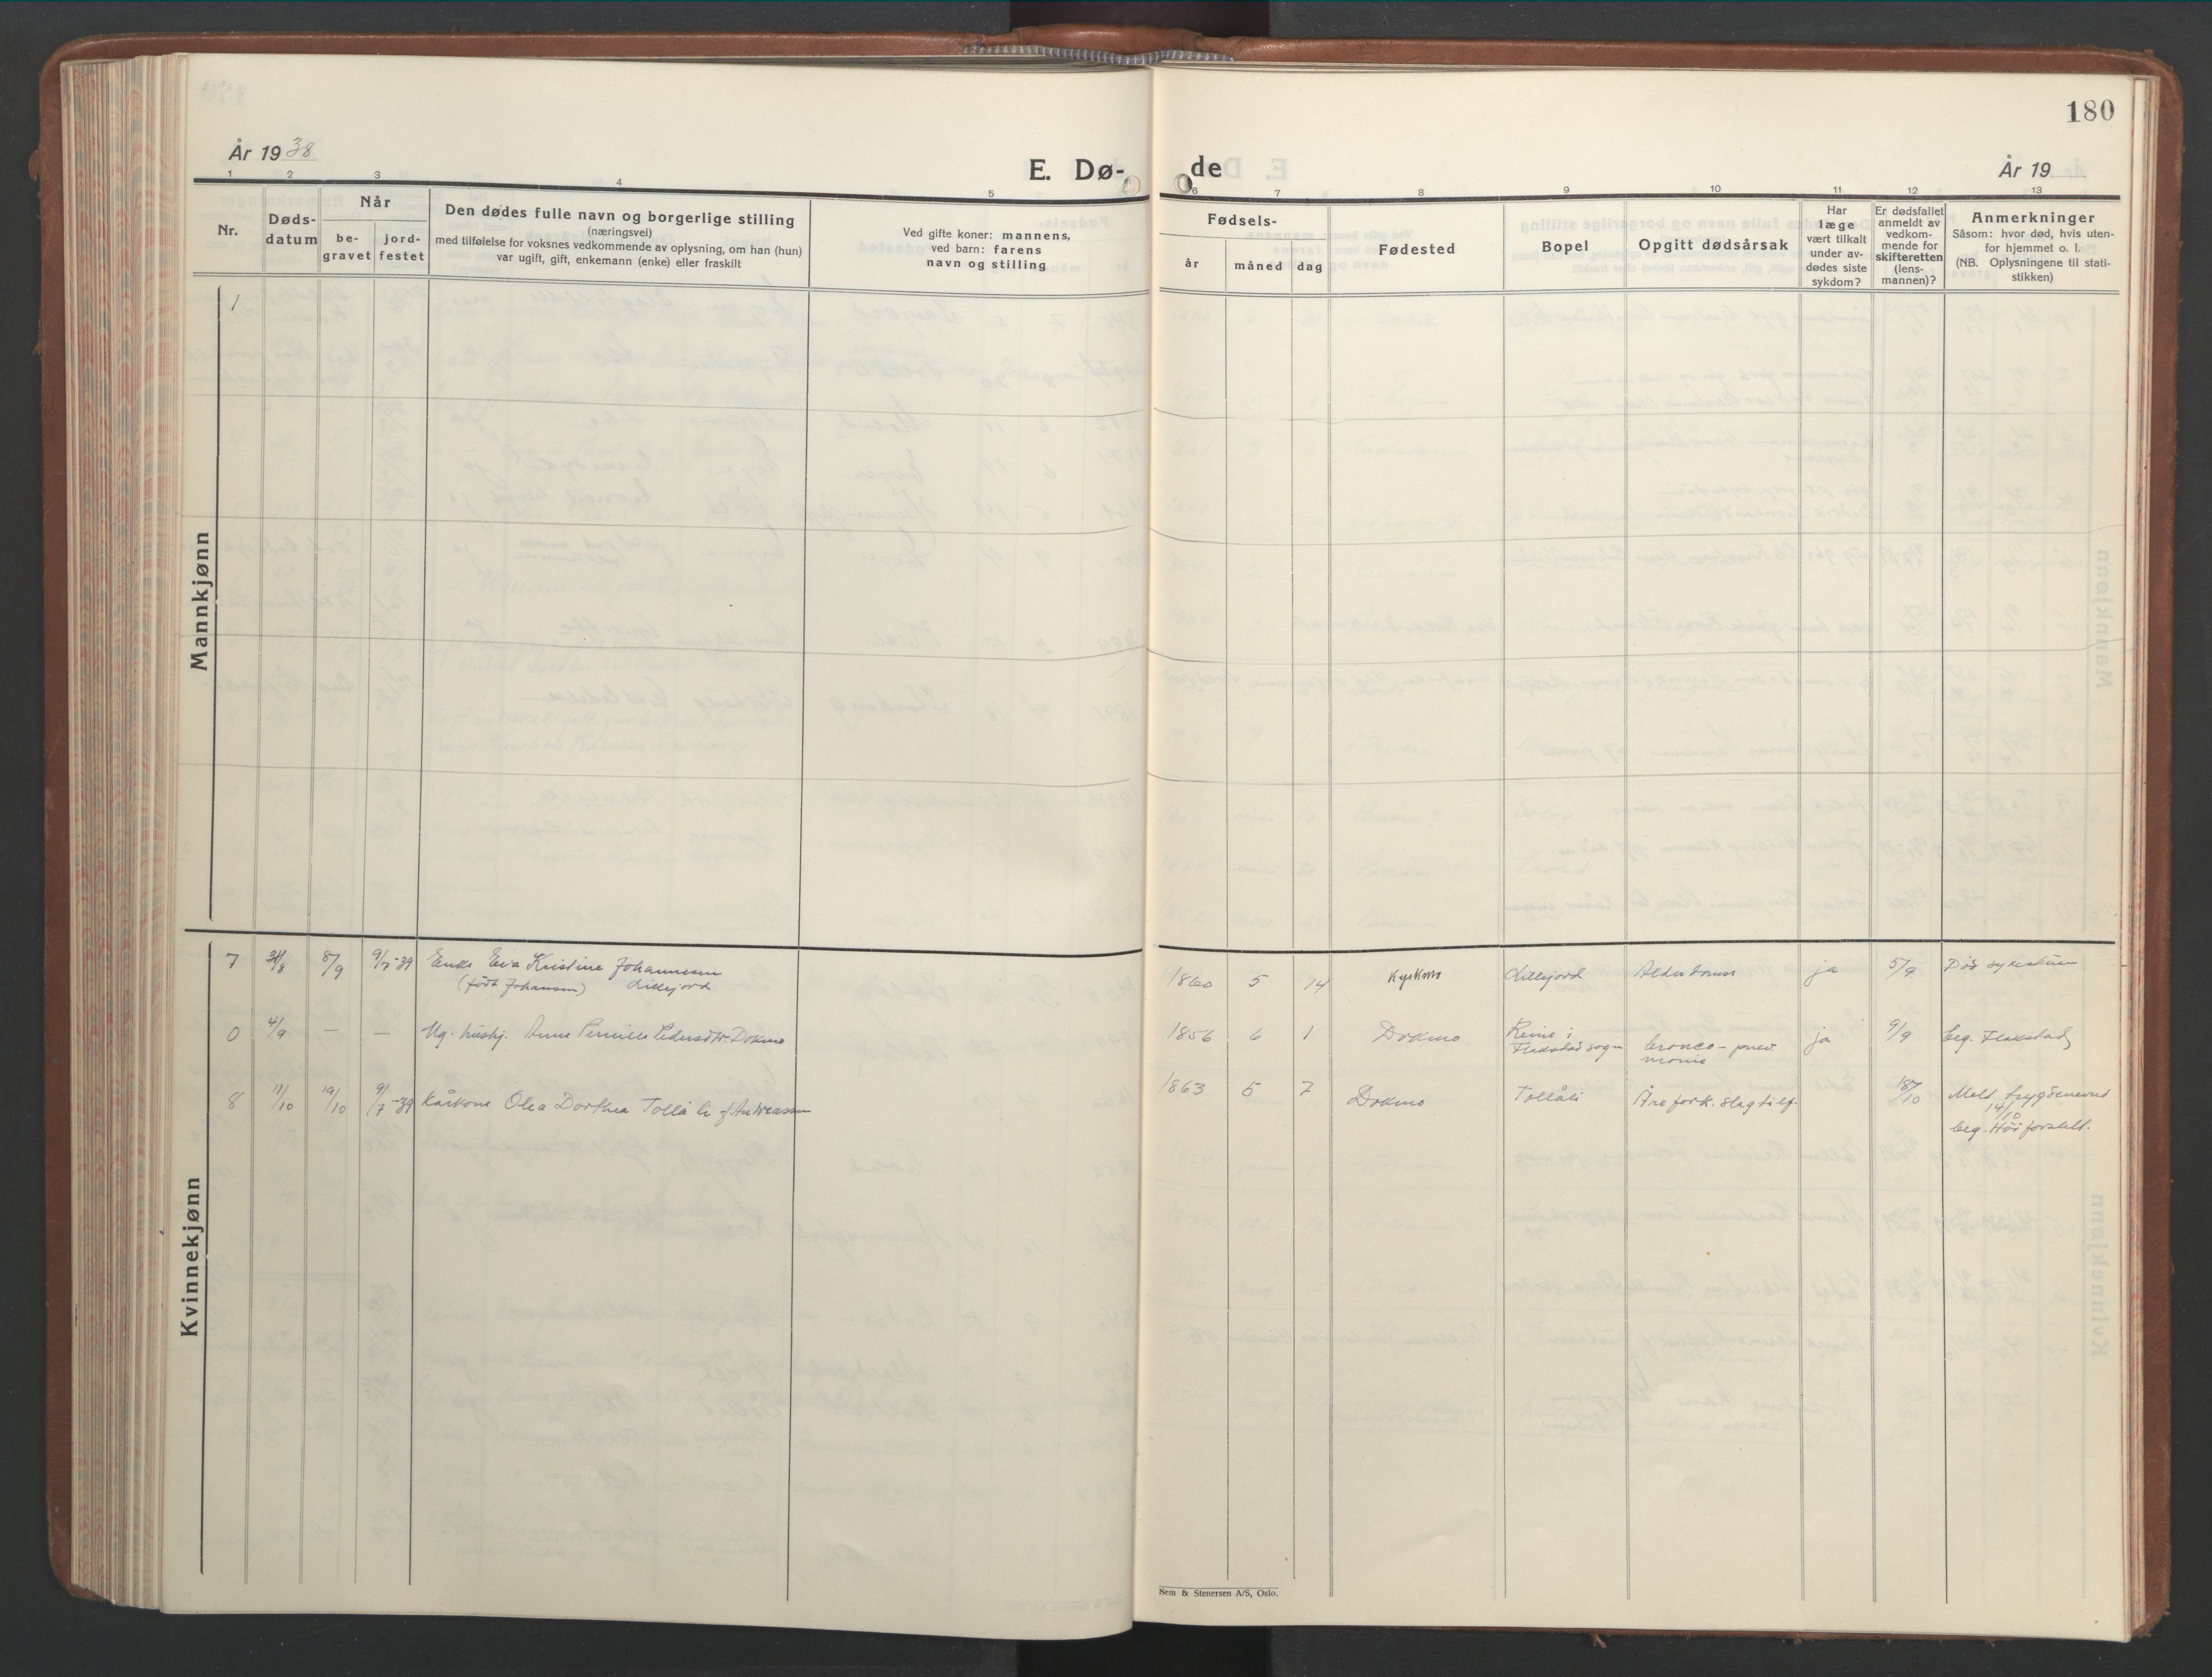 180
År 1938
E. Dø-
de
År 19
1 2 3 4 5 6 7 8 9 10 11 12 13
Nr.
Døds-
datum
Når
be-
gravet
jord-
festet
Den dødes fulle navn og borgerlige stilling
(næringsvei)
med tilføielse for voksnes vedkommende av oplysning, om han (hun)
var ugift, gift, enkemann (enke) eller fraskilt
Ved gifte koner: mannens,
ved barn: farens
navn og stilling
Fødsels-
år
måned
dag
Fødested
Bopel
Opgitt dødsårsak
Har
læge
vært tilkalt
under av-
dødes siste
sykdom?
Er dødsfallet
anmeldt av
vedkom-
mende for
skifteretten
(lens-
mannen)?
Anmerkninger
Såsom: hvor død, hvis uten-
for hjemmet o. l.
(NB. Oplysningene til stati-
stikken)
Mannkjønn
1
Kvinnekjønn
7 31/8 8/9 9/7-39 Enke Eva Kristine Johannesen 1860 5 14 Lillejord Alderdoms ja 5/9 Död sykestuen
(födt Johansen) Lillejord
0 4/9 — — Ug. hushj. Anne Pernille Pedersdtr. Dokmo 1856 6 1 Dokmo Reine i bronco-pnev. ja 9/9 beg. Flakstad
Flakstad sogn monie
8 11/10 19/10 9/7-39 Kårkone Olea Dorthea Tollåli f. Andreassen 1863 5 7 Dokmo Tollåli Årefork. Slagtilf. 18/10 Meld. trygdenevnd
14/10
beg.
Sem & Stenersen A/S, Oslo.